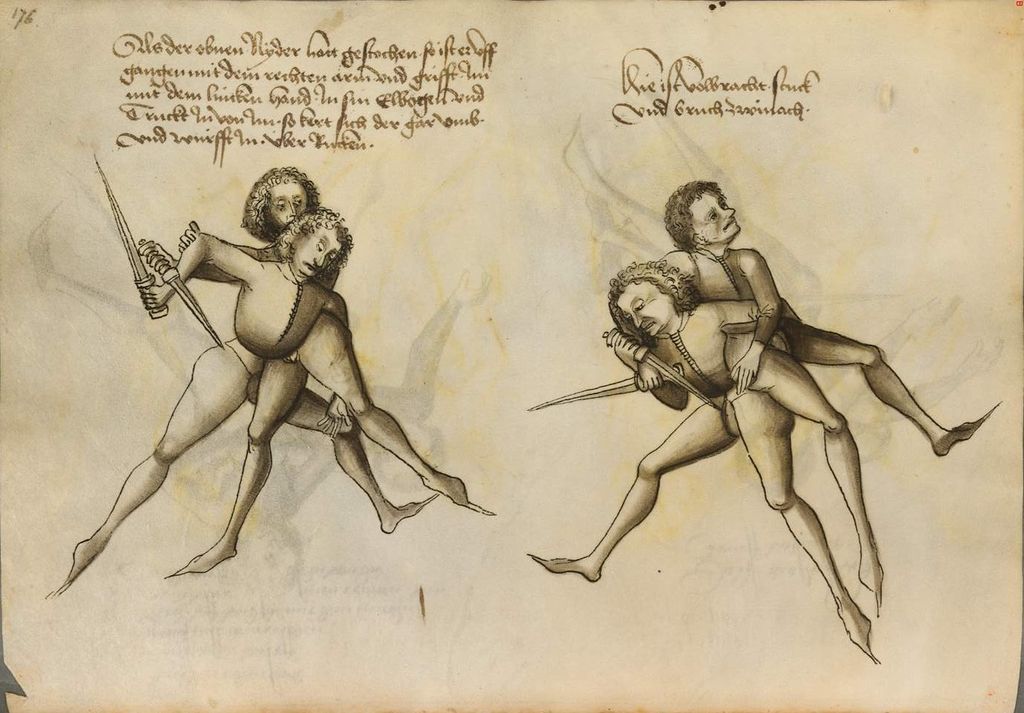 176
Als der oben Nyder hatt gestochen so ist er uff
gangen mit dem rechten arm und grifft Im
mit dem lincken hand In sin Elbogen und
Truckt In von Im so kert sich der gar umb
und wurfft In uber Rucken
Hie ist volbracht stuck
und bruch zwifach